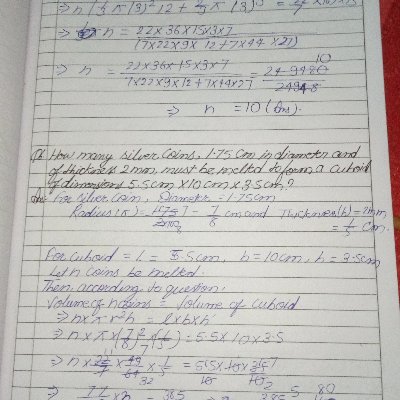 n (1/3 π (3)² 12 + 2/3 π (3)³ =
⇒ n = 22×36×15×3×7 / (7×22×9×12+7×44×27)
⇒ n = 22×36×15×3×7 / 7×22×9×12+7×44×27 = 249480 / 24948 10
⇒ n = 10 (Ans).
Q. How many silver coins, 1.75 cm in diameter and
of thickness 2 mm, must be melted to form a cuboid
of dimensions 5.5 cm × 10 cm × 3.5 cm?
Ans: For silver coin, Diameter = 1.75cm
Radius (r) = 7/8 cm and Thickness (h) = 2mm
= 1/5 cm.
For cuboid = l = 5.5cm, b = 10cm, h = 3.5cm
Let n coins be melted.
Then, according to question.
Volume of n coins = Volume of cuboid
⇒ n × π r² h = l×b×h
⇒ n × π × (7/8)² × (1/5) = 5.5 × 10 × 3.5
⇒ n × 22/7 × 49/64 × 1/5 = 55/10 × 10 × 35/10
⇒ 77 × n = 385